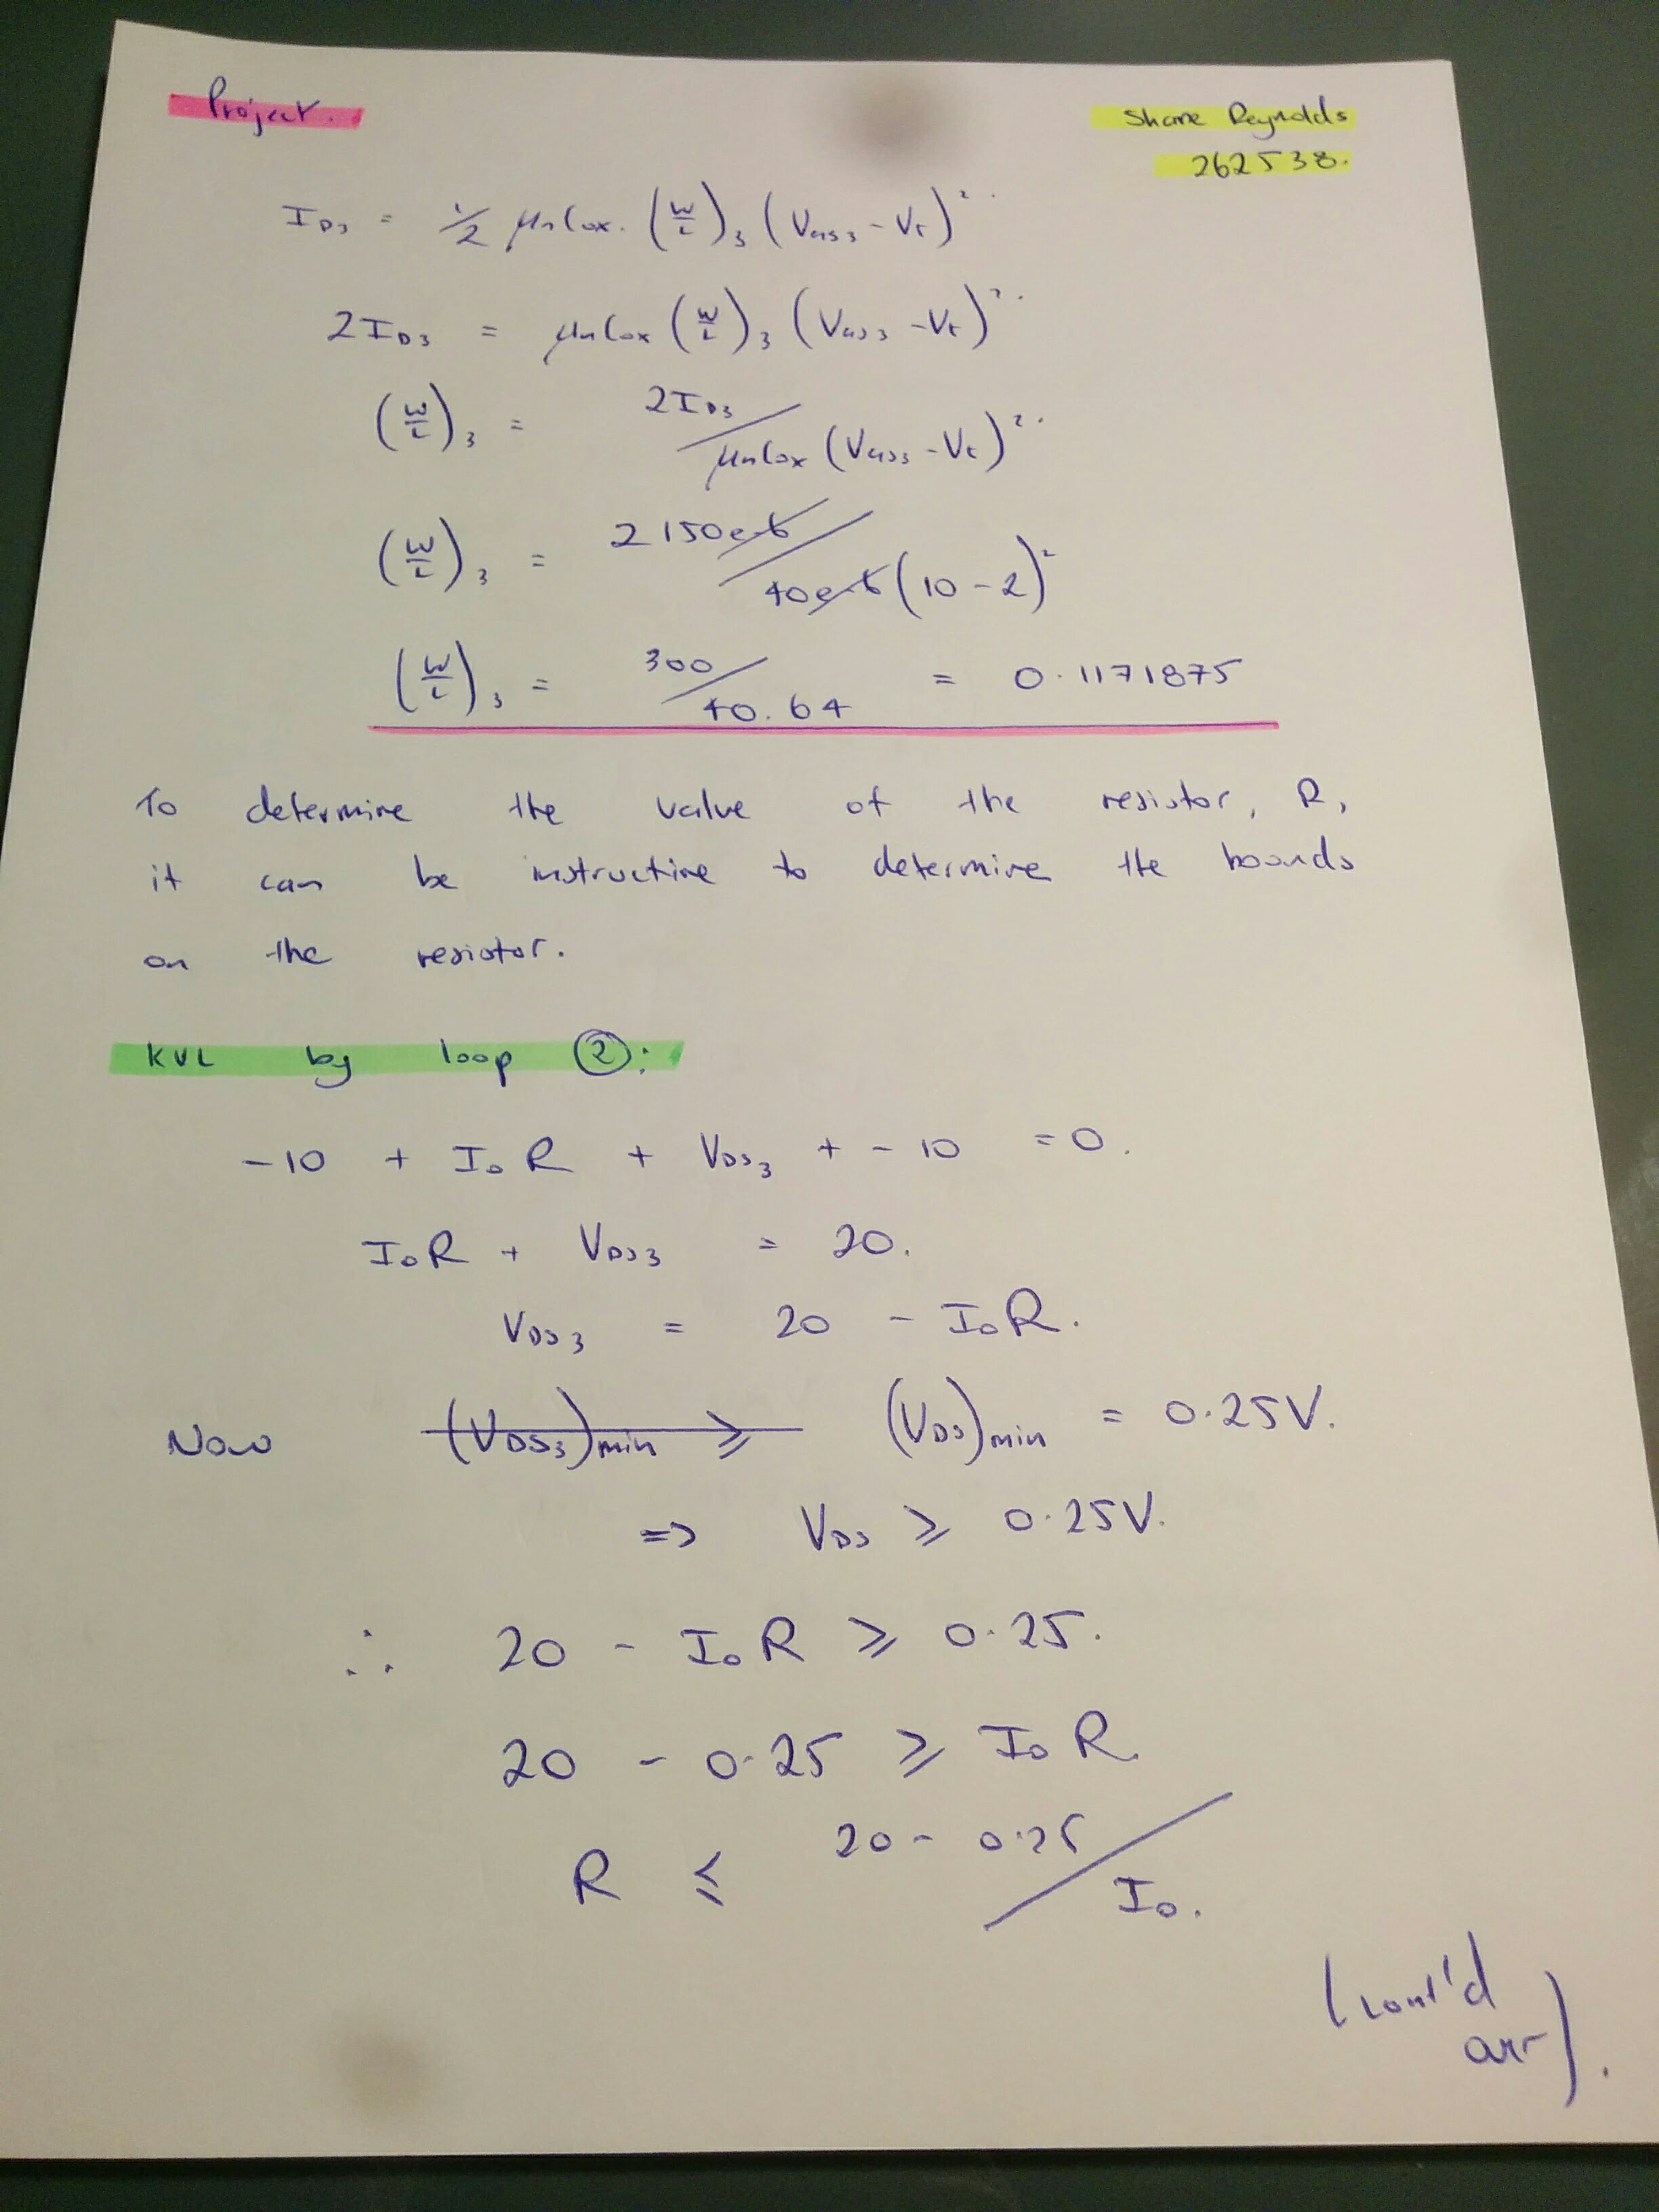 Project.
Shane Reynolds
262538.
I_D3 = 1/2 μnCox. (W/L)_3 (V_GS3 - V_t)^2.
2I_D3 = μnCox (W/L)_3 (V_GS3 - V_t)^2.
(W/L)_3 = 2I_D3 / μnCox (V_GS3 - V_t)^2.
(W/L)_3 = 2 150e-6 / 40e-6 (10 - 2)^2
(W/L)_3 = 300 / 40.64 = 0.1171875
To determine the value of the resistor, R,
it can be instructive to determine the bounds
on the resistor.
KVL by loop ②:
-10 + I_o R + V_DS3 + - 10 = 0.
I_o R + V_DS3 = 20.
V_DS3 = 20 - I_o R.
Now (V_DS3)min ≥ (V_DS)min = 0.25V.
=> V_DS ≥ 0.25V.
∴ 20 - I_o R ≥ 0.25.
20 - 0.25 ≥ I_o R
R ≤ 20 - 0.25 / I_o.
(cont'd